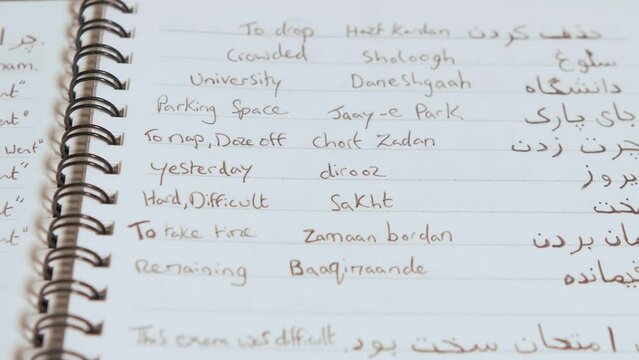 To drop Hazf Kardan حذف کردن
Crowded Sholoogh شلوغ
University Daneshgaah دانشگاه
Parking Space Jaay-e Park جای پارک
To nap, Doze off chort Zadan چرت زدن
yesterday dirooz یروز
Hard, Difficult Sakht سخت
To take time Zamaan bordan مان بردن
Remaining Baaqimaande قیمانده
This exam was difficult. امتحان سخت بود.